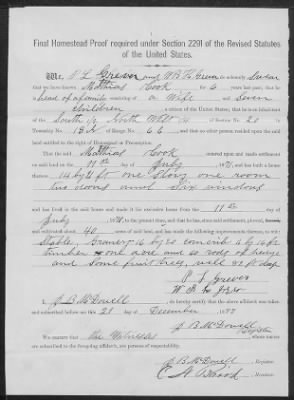 Final Homestead Proof required under Section 2291 of the Revised Statutes
of the United States.
We, P L Grever and W B H Grever do solemnly Swear
that we have known Mathias Cook for 6 years last past; that he is
a head of a family consisting of a Wife & Seven
Children a citizen of the United States; that he is an inhabitant
of the South 1/2 North West 1/4 of Section No. 20 in
Township No. 13 N of Range No. 6 E and that no other person resided upon the said
land entitled to the right of Homestead or Preemption.
That the said Mathias Cook entered upon and made settlement
on said land on the 11th day of July, 1871, and has built a house
thereon 14 by 21 ft one Story one room
two doors and Six windows
and has lived in the said house and made it his exclusive home from the 11th day of
July 1871, to the present time, and that he has, since said settlement, plowed,
and cultivated about 40 acres of said land, and has made the following improvements thereon, to wit:
Stable, Granery 16 by 20 corncrib by 14 ft
timber one acre and 60 rods of hedge
and Some fruit trees, well 32 ft deep
P. L. Grever
W. B. H.
I, J B McDowell do hereby certify that the above affidavit was taken
and subscribed before me this 21 day of December 1877
J B McDowell
Register
We certify that the Witnesses whose names
are subscribed to the foregoing affidavit, are persons of respectability.
J B McDowell, Register.
Receiver.